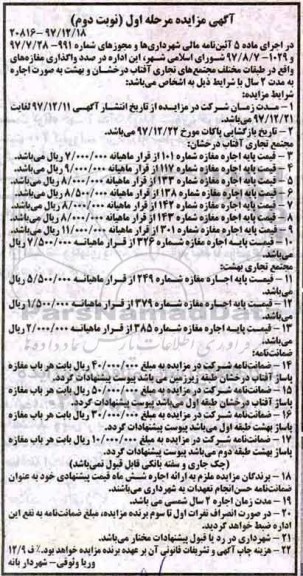 آگهی مزایده مرحله اول (نوبت دوم)
۲۰۸۱۶-۹۷/۱۲/۱۸
در اجرای ماده ۵ آئین‌نامه مالی شهرداری‌ها و مجوزهای شماره ۹۹۱- ۹۷/۷/۲۸
و ۱۰۲۹- ۹۷/۸/۷ شورای اسلامی شهر، این اداره در صدد واگذاری مغازه‌های
واقع در طبقات مختلف مجتمع‌های تجاری آفتاب درخشان و بهشت به صورت اجاره
به مدت ۲ سال با شرایط ذیل به اشخاص می‌باشد:
شرایط مزایده:
۱ - مدت زمان شرکت در مزایده از تاریخ انتشار آگهی ۹۷/۱۲/۱۱ لغایت
۹۷/۱۲/۲۱ می‌باشد.
۲ - تاریخ بازگشایی پاکات مورخ ۹۷/۱۲/۲۲ می‌باشد.
مجتمع تجاری آفتاب درخشان:
۳ - قیمت پایه اجاره مغازه شماره ۱۰۱ از قرار ماهیانه ۷/۰۰۰/۰۰۰ ریال می‌باشد.
۴ - قیمت پایه اجاره مغازه شماره ۱۱۷ از قرار ماهیانه ۹/۰۰۰/۰۰۰ ریال می‌باشد.
۵ - قیمت پایه اجاره مغازه شماره ۱۳۳ از قرار ماهیانه ۸/۰۰۰/۰۰۰ ریال می‌باشد.
۶ - قیمت پایه اجاره مغازه شماره ۱۳۸ از قرار ماهیانه ۸/۵۰۰/۰۰۰ ریال می‌باشد.
۷ - قیمت پایه اجاره مغازه شماره ۱۴۲ از قرار ماهیانه ۸/۰۰۰/۰۰۰ ریال می‌باشد.
۸ - قیمت پایه اجاره مغازه شماره ۱۴۳ از قرار ماهیانه ۸/۰۰۰/۰۰۰ ریال می‌باشد.
۹ - قیمت پایه اجاره مغازه شماره ۳۰۱ از قرار ماهیانه ۱۱/۰۰۰/۰۰۰ ریال می‌باشد.
۱۰ - قیمت پایه اجاره مغازه شماره ۳۲۶ از قرار ماهیانه ۷/۵۰۰/۰۰۰ ریال
می‌باشد.
مجتمع تجاری بهشت:
۱۱ - قیمت پایه اجاره مغازه شماره ۲۴۹ از قرار ماهیانه ۵/۵۰۰/۰۰۰ ریال
می‌باشد.
۱۲ - قیمت پایه اجاره مغازه شماره ۳۷۹ از قرار ماهیانه ۱/۵۰۰/۰۰۰ ریال
می‌باشد.
۱۳ - قیمت پایه اجاره مغازه شماره ۳۸۵ از قرار ماهیانه ۲/۰۰۰/۰۰۰ ریال
می‌باشد.
ضمانت‌نامه:
۱۴ - ضمانت‌نامه شرکت در مزایده به مبلغ ۴۰/۰۰۰/۰۰۰ ریال بابت هر باب مغازه
پاساژ آفتاب درخشان طبقه زیرزمین می باشد پیوست پیشنهادات گردد.
۱۵ - ضمانت‌نامه شرکت در مزایده به مبلغ ۵۰/۰۰۰/۰۰۰ ریال بابت هر باب مغازه
پاساژ آفتاب درخشان طبقه اول می‌باشد پیوست پیشنهادات گردد.
۱۶ - ضمانت‌نامه شرکت در مزایده به مبلغ ۳۰/۰۰۰/۰۰۰ ریال بابت هر باب مغازه
پاساژ بهشت طبقه اول می‌باشد پیوست پیشنهادات گردد.
۱۷ - ضمانت‌نامه شرکت در مزایده به مبلغ ۱۰/۰۰۰/۰۰۰ ریال بابت هر باب مغازه
پاساژ بهشت طبقه دوم می‌باشد پیوست پیشنهادات گردد.
(چک جاری و سفته بانکی قابل قبول نمی‌باشد)
۱۸ - برندگان مزایده ملزم به ارائه اجاره شش ماه قیمت پیشنهادی خود به عنوان
ضمانت‌نامه حسن‌انجام تعهدات به شهرداری می‌باشند.
۱۹ - مدت زمان اجاره ۲ سال شمسی می باشد.
۲۰ - در صورت انصراف نفرات اول تا سوم برنده مزایده، مبلغ ضمانت‌نامه به نفع این
اداره ضبط خواهد گردید.
۲۱ - شهرداری در رد یا قبول پیشنهادات مختار می‌باشد.
۲۲ - هزینه چاپ آگهی و تشریفات قانونی آن بر عهده برنده مزایده خواهد بود. ک ف ۱۲/۹
وریا وثوقی - شهردار بانه